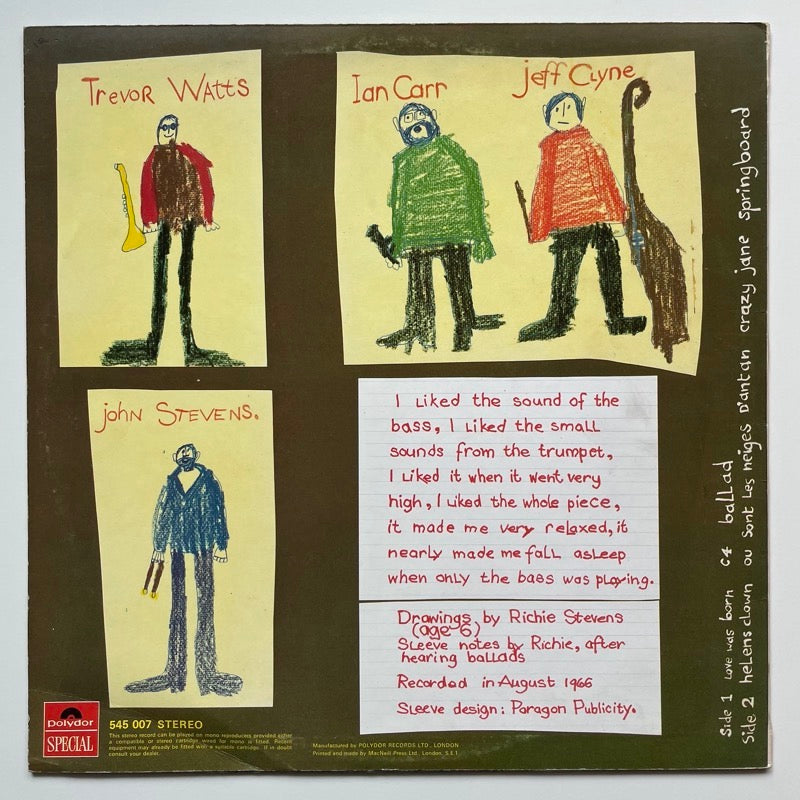 Trevor Watts
Ian Carr
Jeff Clyne
John Stevens.
I liked the sound of the
bass, I liked the small
sounds from the trumpet,
I liked it when it went very
high, I liked the whole piece,
it made me very relaxed, it
nearly made me fall asleep
when only the bass was playing.
Drawings by Richie Stevens
(age 6)
Sleeve notes by Richie, after
hearing ballads
Recorded in August 1966
Sleeve design: Paragon Publicity.
Side 1 Love was born C4 ballad
Side 2 helens clown ou sont Les neiges D'antan crazy jane springboard
polydor
SPECIAL
545 007 STEREO
This stereo record can be played on mono reproducers provided either
a compatible or stereo cartridge wired for mono is fitted. Recent
equipment may already be fitted with a suitable cartridge. If in doubt
consult your dealer.
Manufactured by POLYDOR RECORDS LTD., LONDON
Printed and made by MacNeill Press Ltd., London, S.E.1